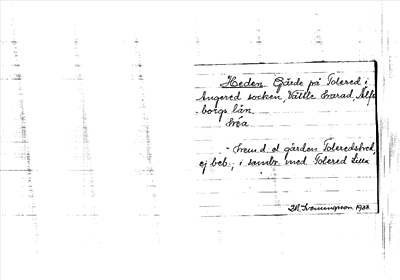 Heden. Gärde på Tolered i
Angered socken, Vättle härad, Älfs
-borgs län.
är en d. af gården Toleredshed,
ej beb.; i sambr med Tolered Lilla
1933